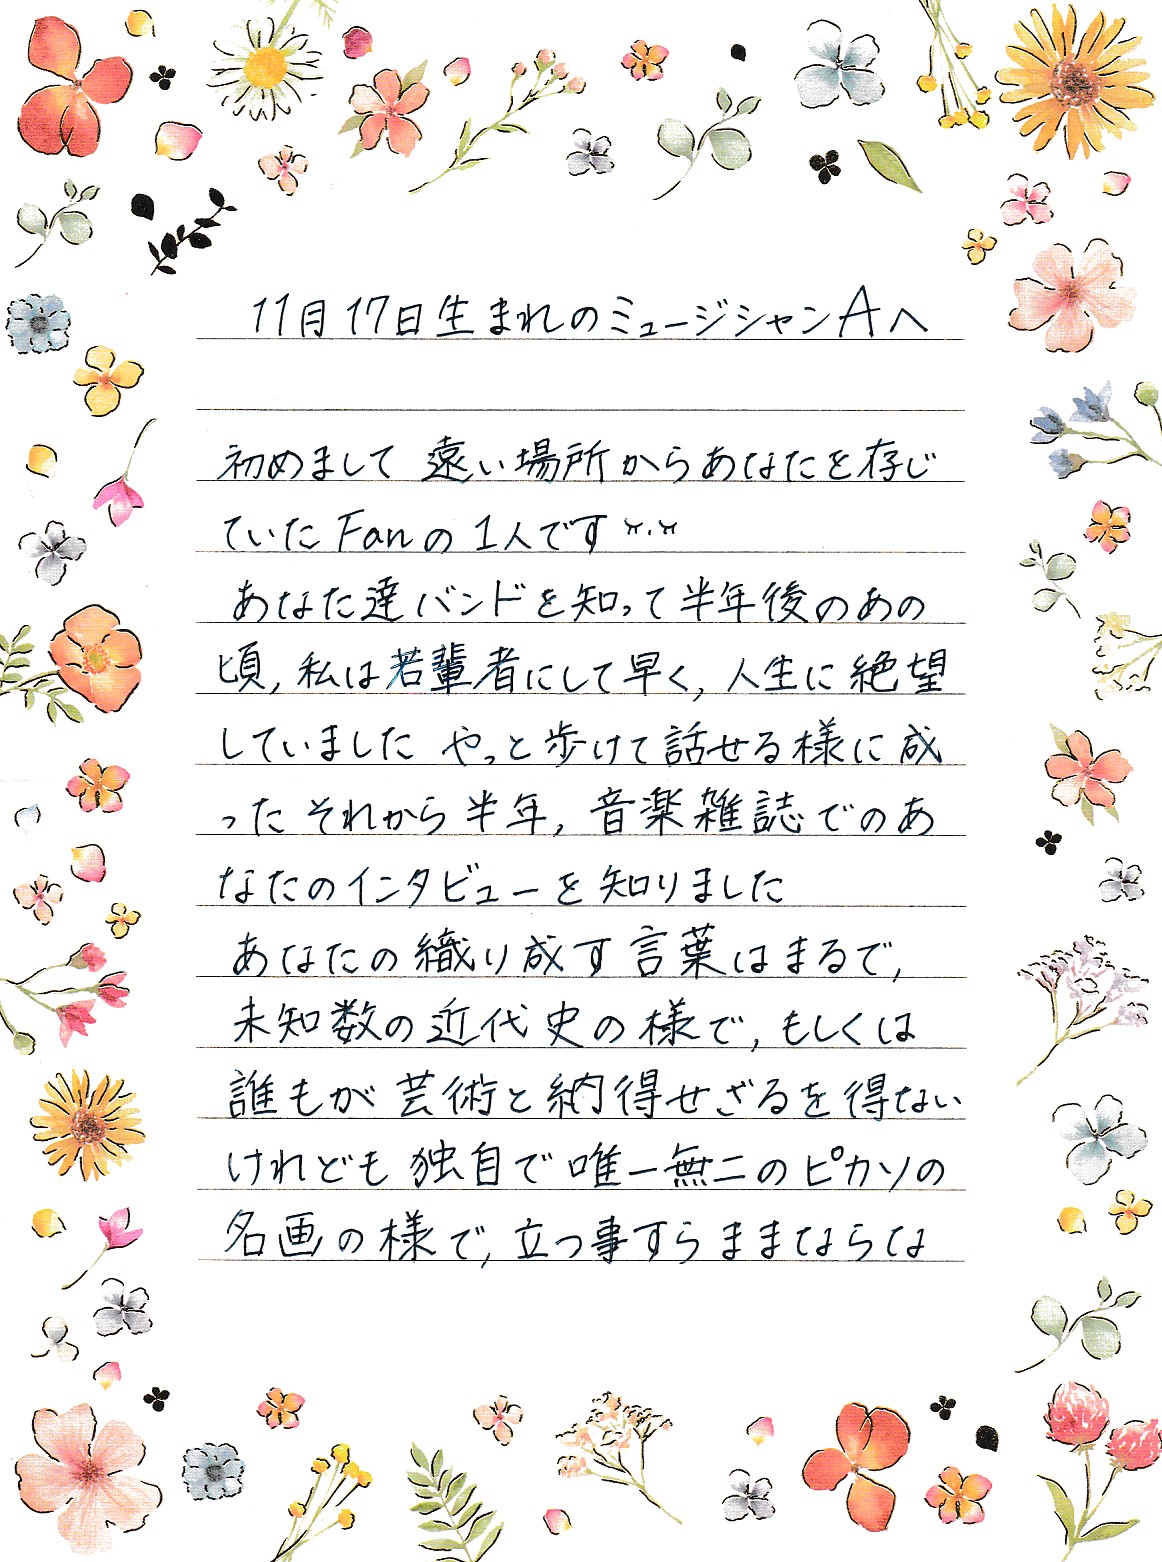 11月17日生まれのミュージシャンAへ
初めまして 遠い場所からあなたを存じ
ていたFanの1人です
あなた達バンドを知って半年後のあの
頃, 私は若輩者にして早く, 人生に絶望
していました やっと歩けて話せる様に成
った それから半年, 音楽雑誌でのあ
なたのインタビューを知りました
あなたの織り成す言葉はまるで,
未知数の近代史の様で, もしくは
誰もが芸術と納得せざるを得ない
けれども独自で唯一無二のピカソの
名画の様で, 立つ事すらままならな